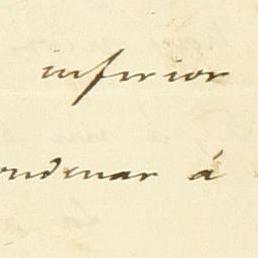 inferior
ondenar á